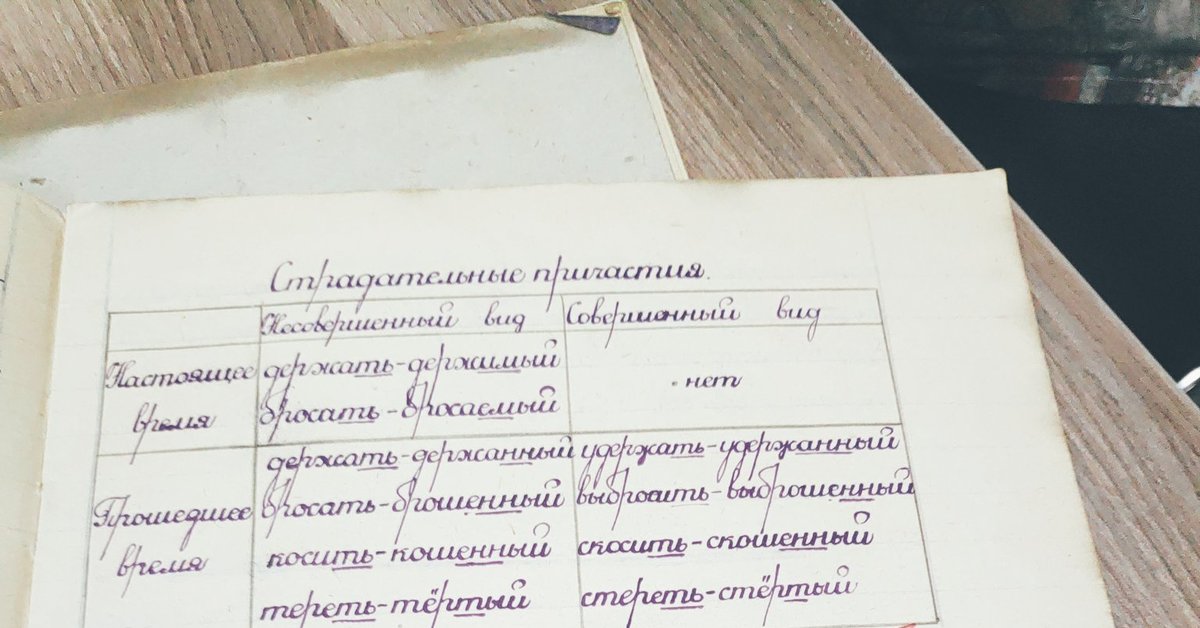 Страдательные причастия.
Несовершенный вид Совершенный вид
Настоящее время
держать-держимый
бросать-бросаемый
нет
Прошедшее время
держать-держанный удержать-удержанный
бросать-брошенный выбросить-выброшенный
косить-кошенный скосить-скошенный
тереть-тёртый стереть-стёртый